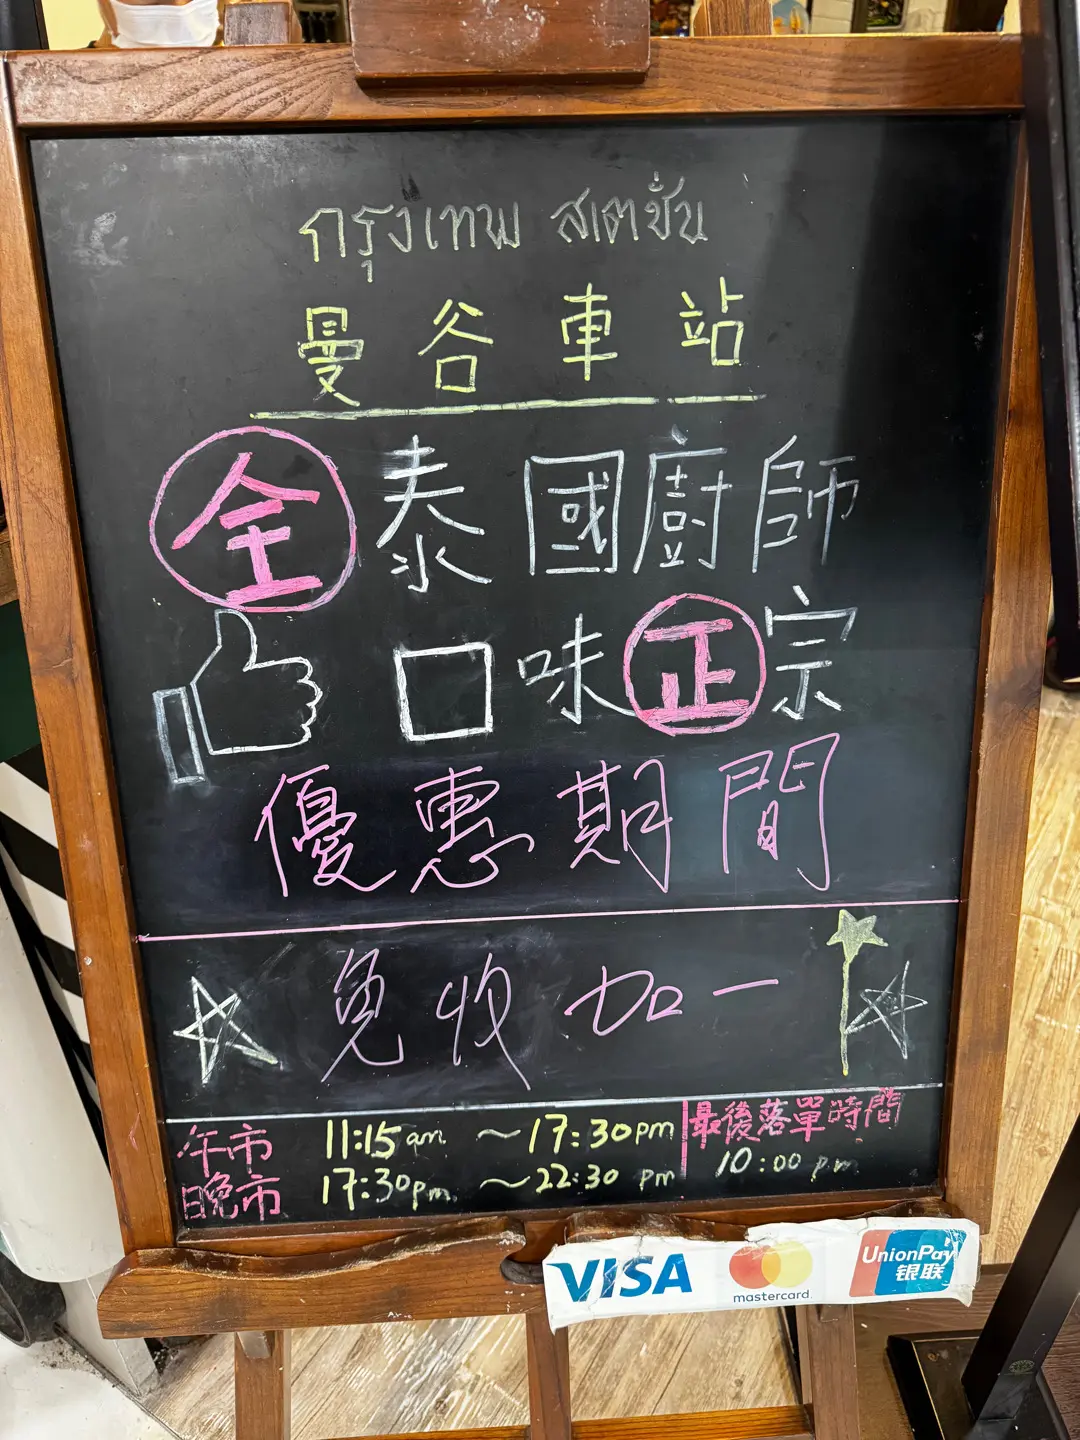 กรุงเทพ สเตชั่น
曼谷車站
全泰國廚師
口味正宗
優惠期間
免收加一
午市 11:15am ~17:30pm
晚市 17:30pm ~22:30 pm
最後落單時間
10:00 p.m
VISA mastercard. UnionPay 银联